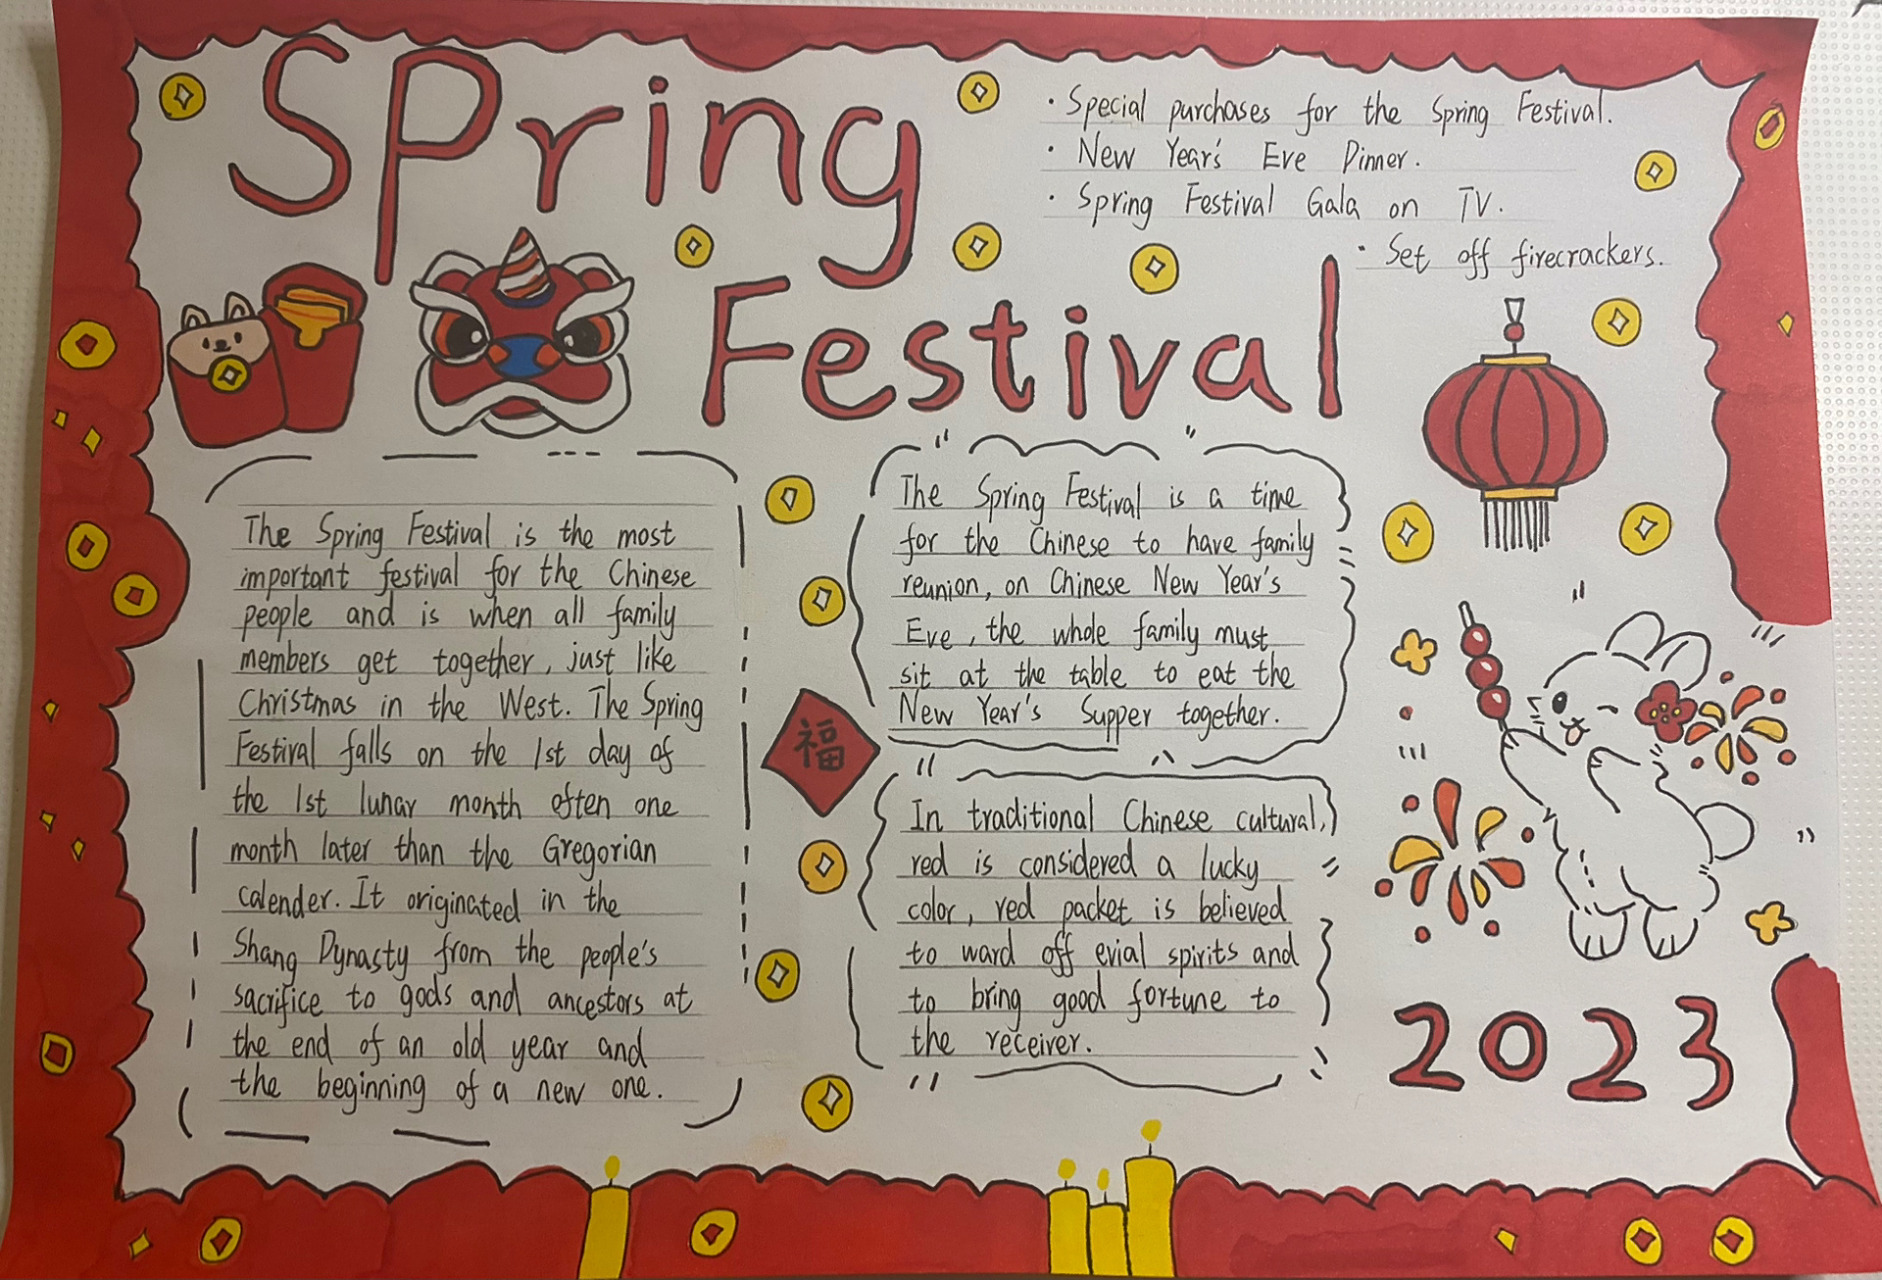 SPring
Festival
· Special purchases for the Spring Festival.
· New Year's Eve Dinner.
· Spring Festival Gala on TV.
· Set off firecrackers.
The Spring Festival is the most
important festival for the Chinese
people and is when all family
members get together, just like
Christmas in the West. The Spring
Festival falls on the 1st day of
the 1st lunar month often one
month later than the Gregorian
calender. It originated in the
Shang Dynasty from the people's
sacrifice to gods and ancestors at
the end of an old year and
the beginning of a new one.
福
The Spring Festival is a time
for the Chinese to have family
reunion, on Chinese New Year's
Eve, the whole family must
sit at the table to eat the
New Year's Supper together.
In traditional Chinese cultural,
red is considered a lucky
color, red packet is believed
to ward off evial spirits and
to bring good fortune to
the receiver.
2023